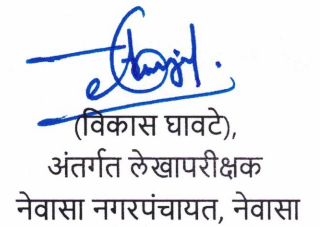 (विकास घावटे),
अंतर्गत लेखापरीक्षक
नेवासा नगरपंचायत, नेवासा